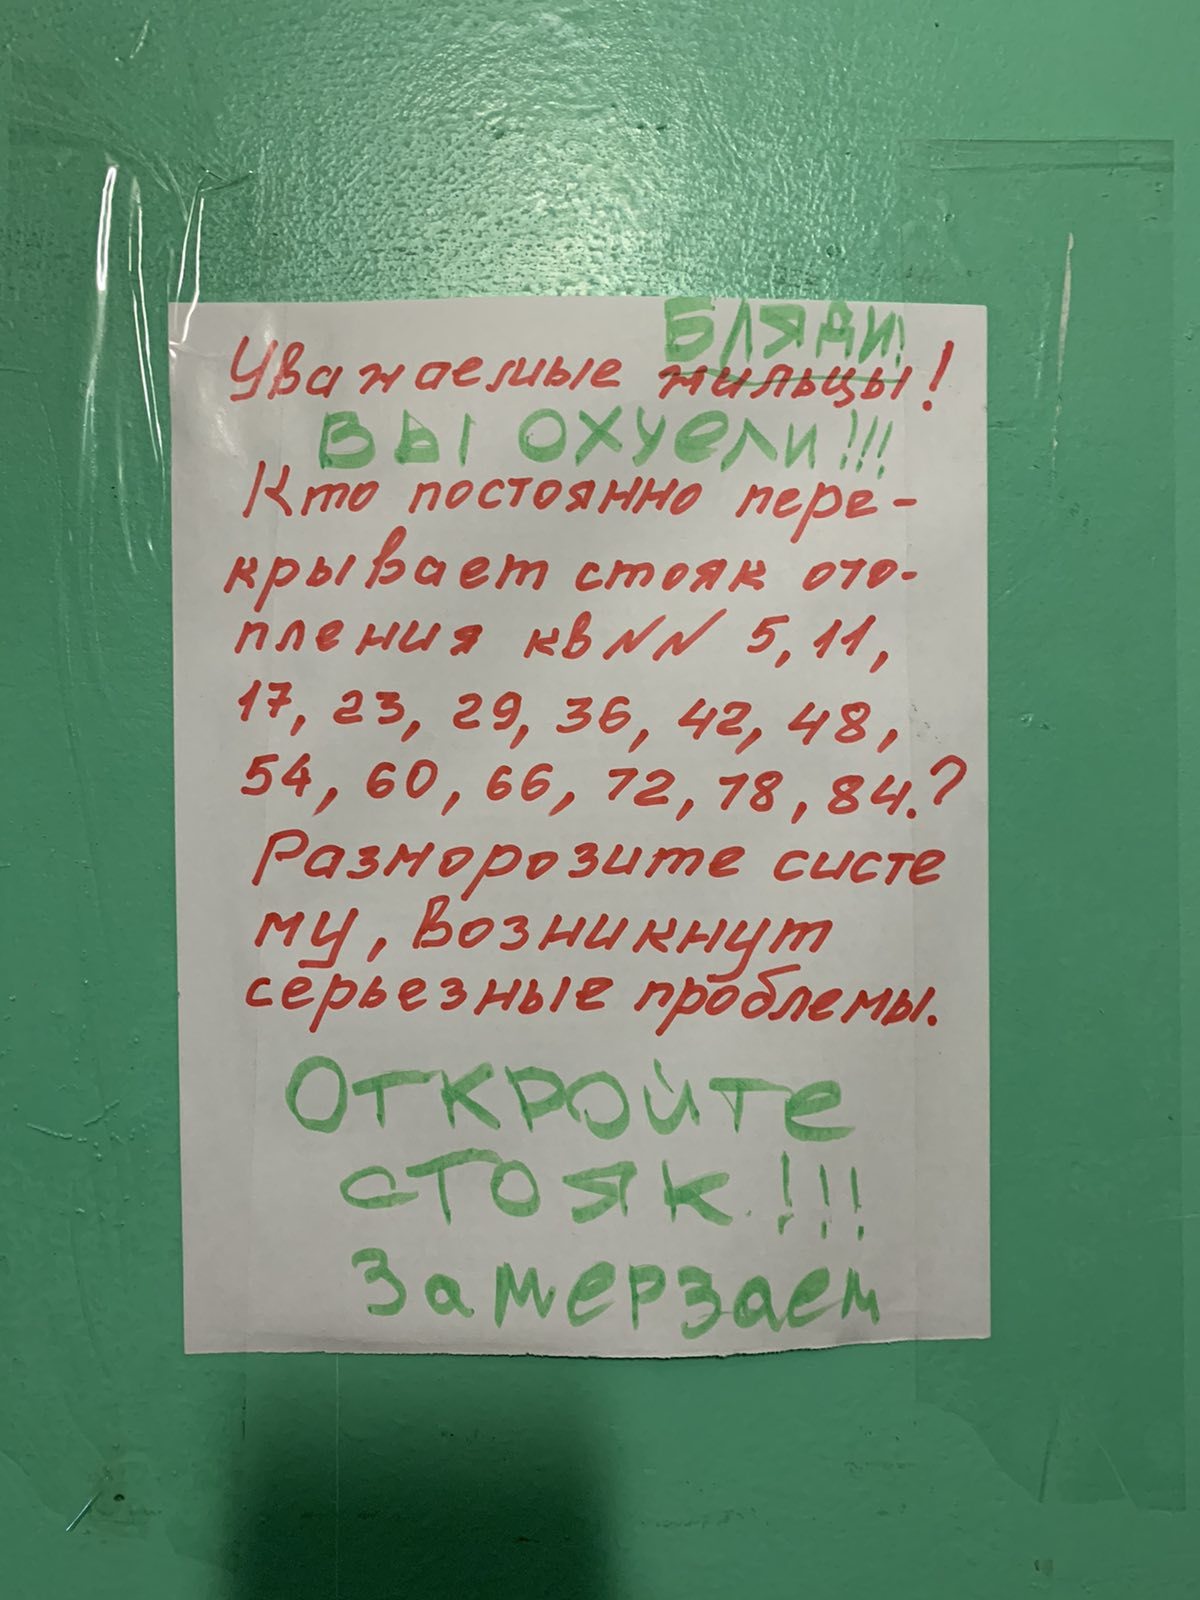 БЛЯДИ!
Уважаемые жильцы!
ВЫ ОХУЕЛИ!!!
Кто постоянно пере-
крывает стояк ото-
пления кв NN 5, 11,
17, 23, 29, 36, 42, 48,
54, 60, 66, 72, 78, 84.?
Разморозите систе
му, возникнут
серьезные проблемы.
ОТКРОЙТЕ
СТОЯК!!!
Замерзаем